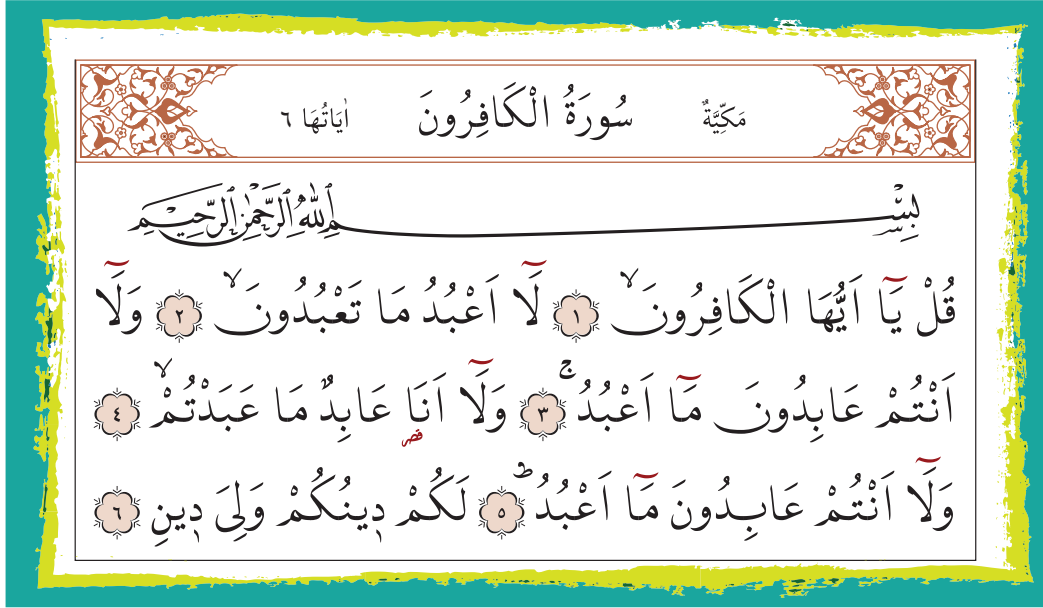 مَكِّيَّةٌ سُورَةُ الْكَافِرُونَ اٰيَاتُهَا ٦
بِسْمِ اللّٰهِ الرَّحْمٰنِ الرَّحٖيمِ
قُلْ يَٓا اَيُّهَا الْكَافِرُونَۙ ١ لَٓا اَعْبُدُ مَا تَعْبُدُونَۙ ٢ وَلَٓا
اَنْتُمْ عَابِدُونَ مَٓا اَعْبُدُۚ ٣ وَلَٓا اَنَا۬ عَابِدٌ مَا عَبَدْتُمْۙ ٤
وَلَٓا اَنْتُمْ عَابِدُونَ مَٓا اَعْبُدُۜ ٥ لَكُمْ دٖينُكُمْ وَلِيَ دٖينِ ٦